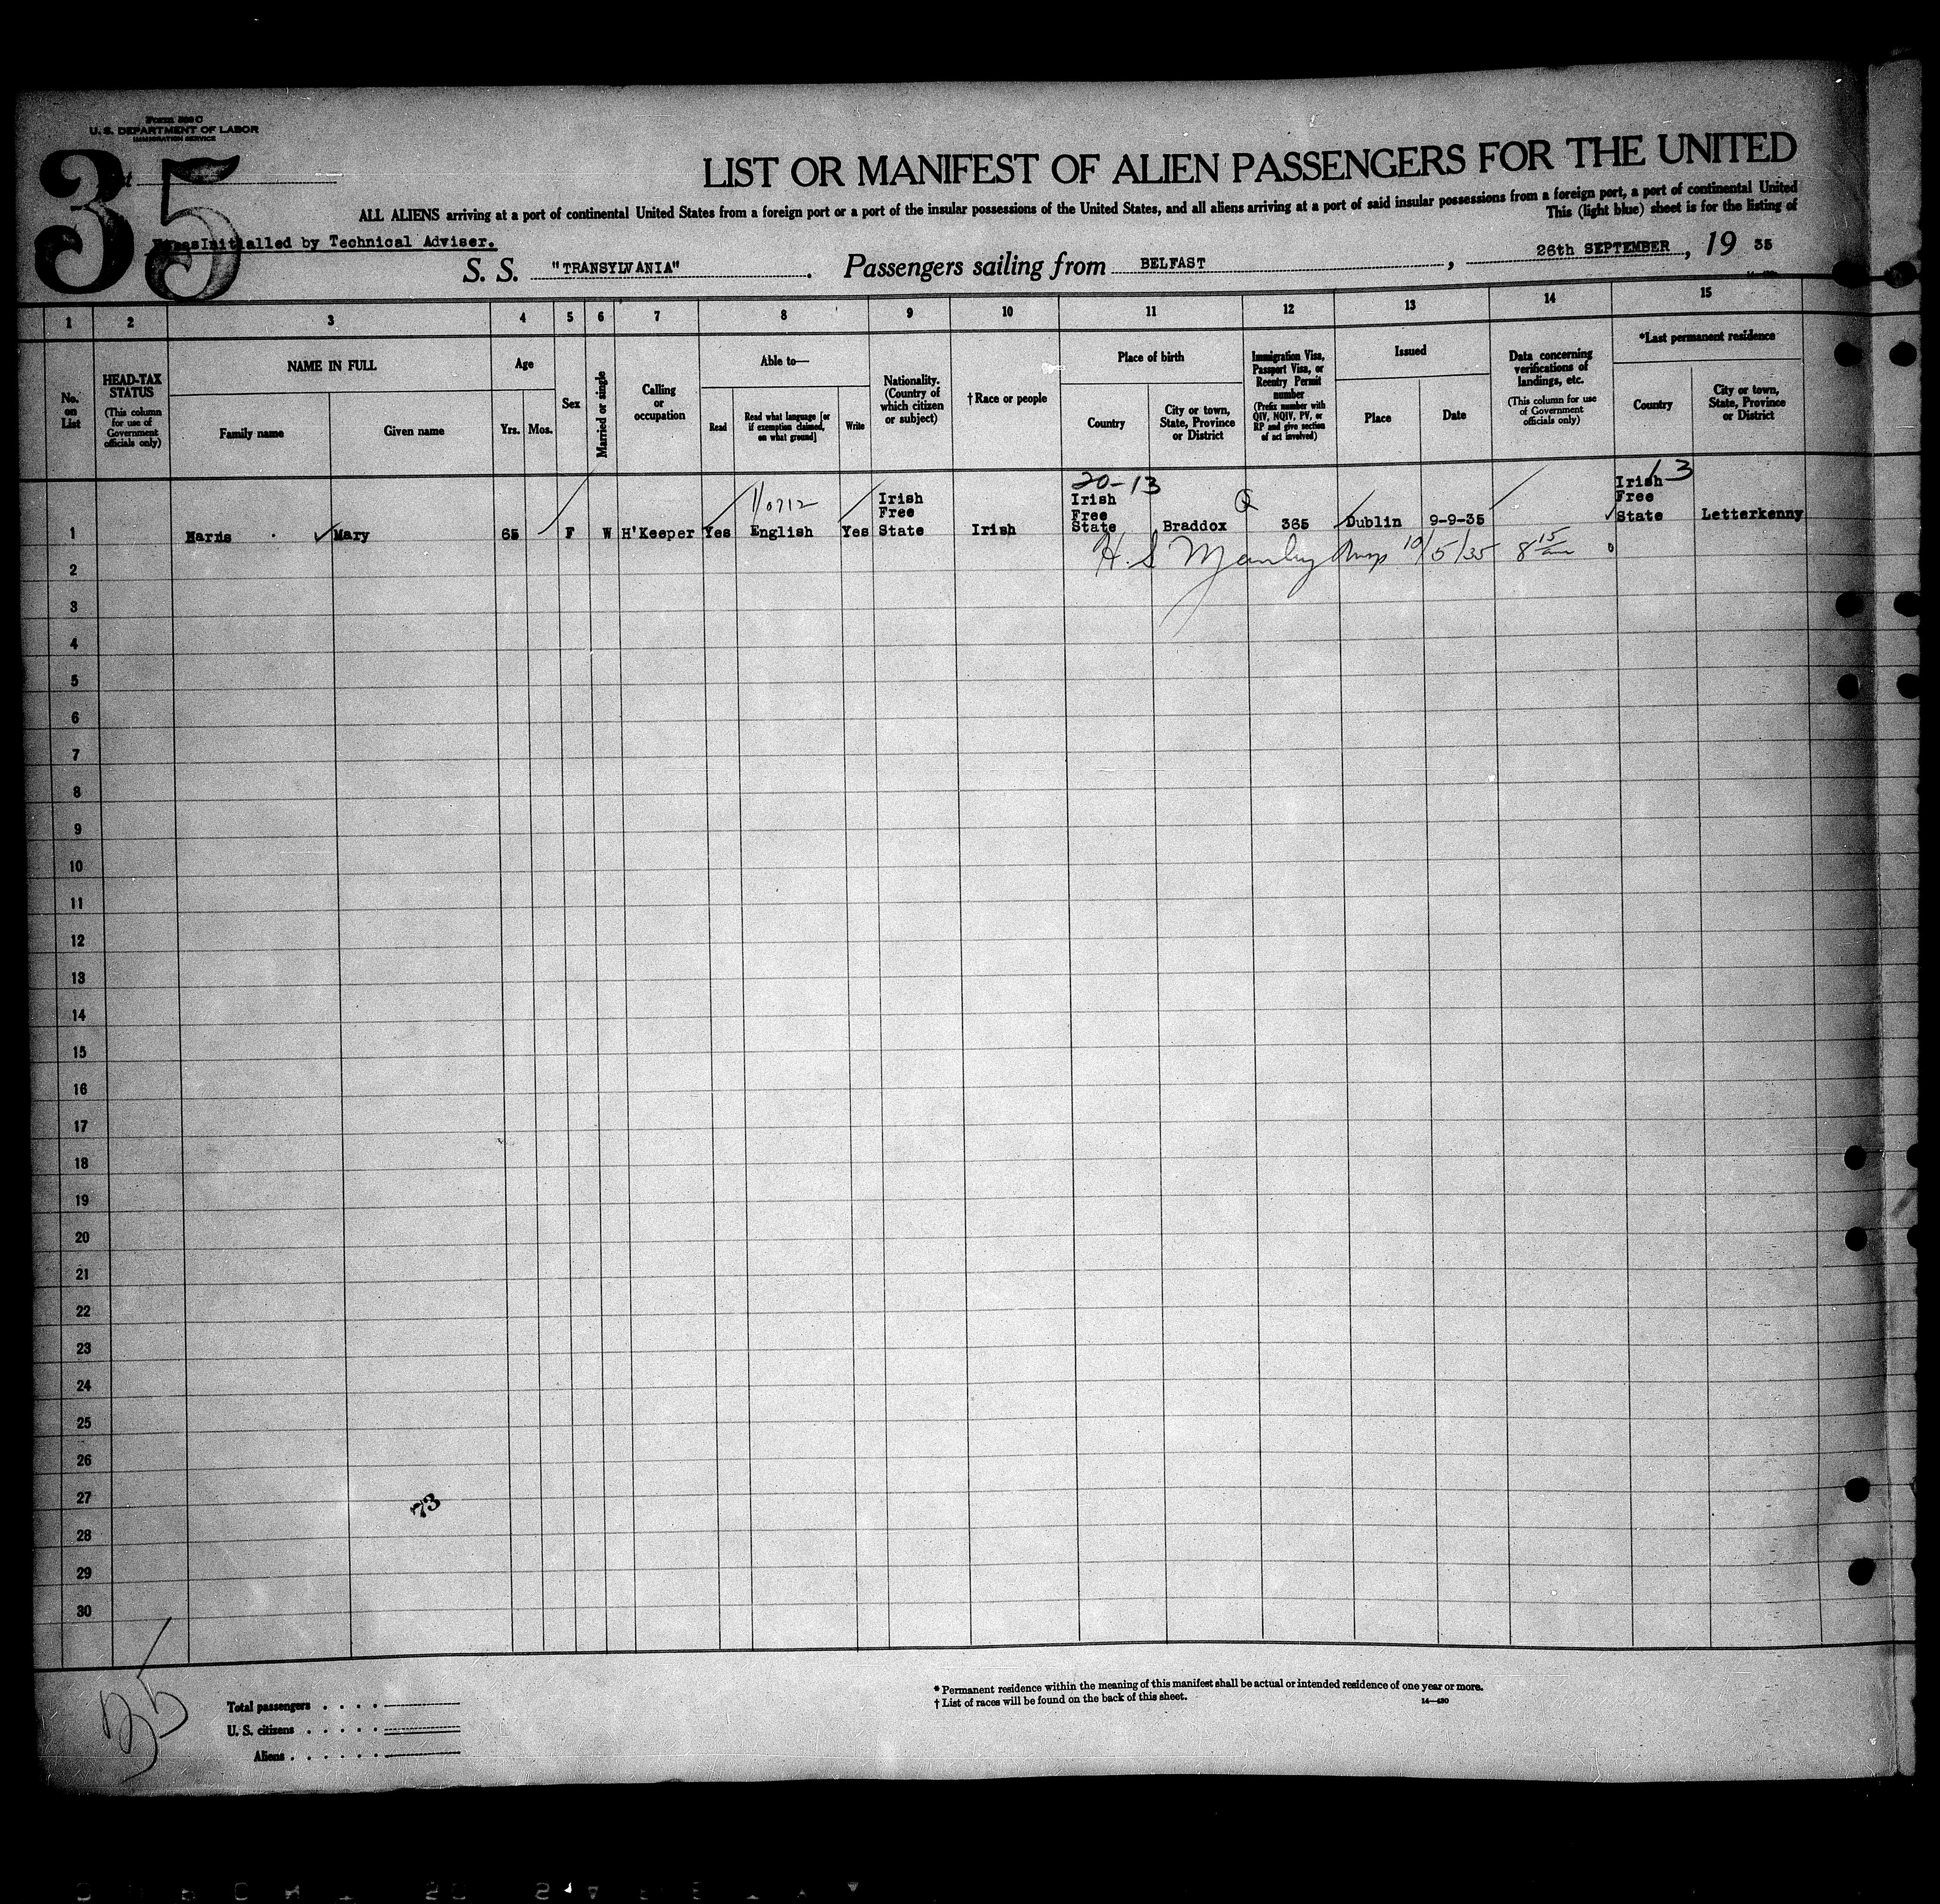 Form 500 C
U. S. DEPARTMENT OF LABOR
IMMIGRATION SERVICE
35
LIST OR MANIFEST OF ALIEN PASSENGERS FOR THE UNITED
ALL ALIENS arriving at a port of continental United States from a foreign port or a port of the insular possessions of the United States, and all aliens arriving at a port of said insular possessions from a foreign port, a port of continental United
This (light blue) sheet is for the listing of
Initialled by Technical Adviser.
S. S. "TRANSYLVANIA". Passengers sailing from BELFAST, 26th SEPTEMBER, 19 35
1 2 3 4 5 6 7 8 9 10 11 12 13 14 15
No. on List
HEAD-TAX STATUS (This column for use of Government officials only)
NAME IN FULL
Family name
Given name
Age
Yrs. Mos.
Sex
Married or single
Calling or occupation
Able to—
Read
Read what language [or if exemption claimed, on what ground]
Write
Nationality. (Country of which citizen or subject)
†Race or people
Place of birth
Country
City or town, State, Province or District
Immigration Visa, Passport Visa, or Reentry Permit number (Prefix number with QIV, NQIV, PV, or RP and give section of act involved)
Issued
Place
Date
Data concerning verifications of landings, etc. (This column for use of Government officials only)
*Last permanent residence
Country
City or town, State, Province or District
20-13
13
1 Harris Mary 65 F W H'Keeper Yes English Yes Irish Free State Irish Irish Free State Braddox Q 365 Dublin 9-9-35 Irish Free State Letterkenny
H. S Manley Insp 10/5/35 8 15 am
2
3
4
5
6
7
8
9
10
11
12
13
14
15
16
17
18
19
20
21
22
23
24
25
26
27
73
28
29
30
Total passengers
U. S. citizens
Aliens
* Permanent residence within the meaning of this manifest shall be actual or intended residence of one year or more.
† List of races will be found on the back of this sheet.
14—430